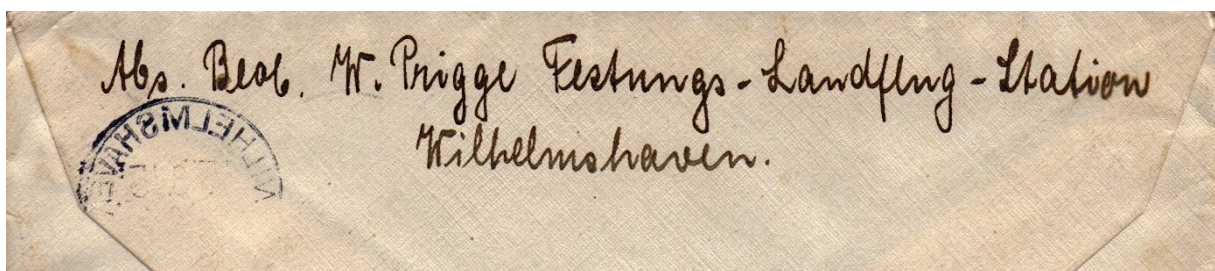 Abs. Beob. W. Prigge Festungs-Landflug-Station
Wilhelmshaven.
WILHELMSHAVE